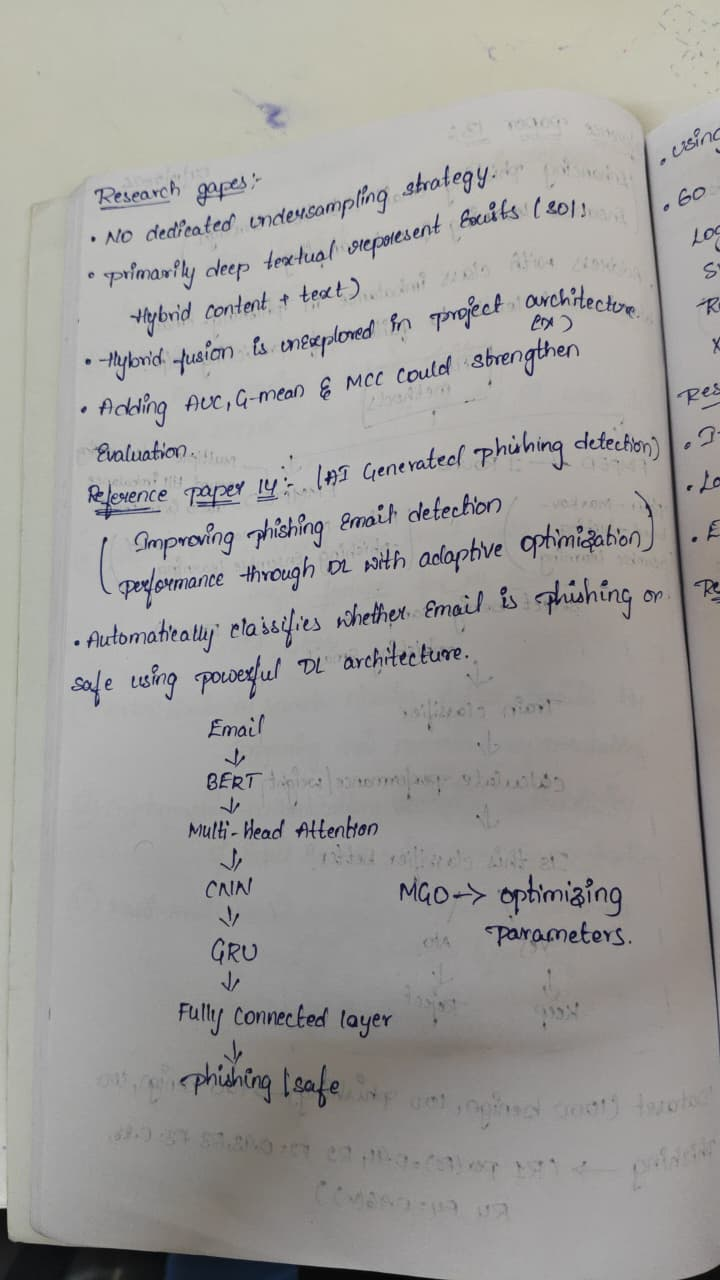 Research gapes:-
• No dedicated undersampling strategy.
• primarily deep textual represent
Hybrid content + text)
• Hybrid fusion is unexplored in project architecture.
(ex)
• Adding AUC, G-mean & MCC could strengthen
Evaluation.
Reference paper 14:- (AI Generated phishing detection)
(Improving phishing Email detection
performance through DL with adaptive optimization)
• Automatically classifies whether Email is phishing or
safe using powerful DL architecture.
Email
↓
BERT
↓
Multi-Head Attention
↓
CNN
↓
GRU
↓
Fully connected layer
↓
phishing / safe
MGO → optimizing
parameters.
• using
• GO
Res